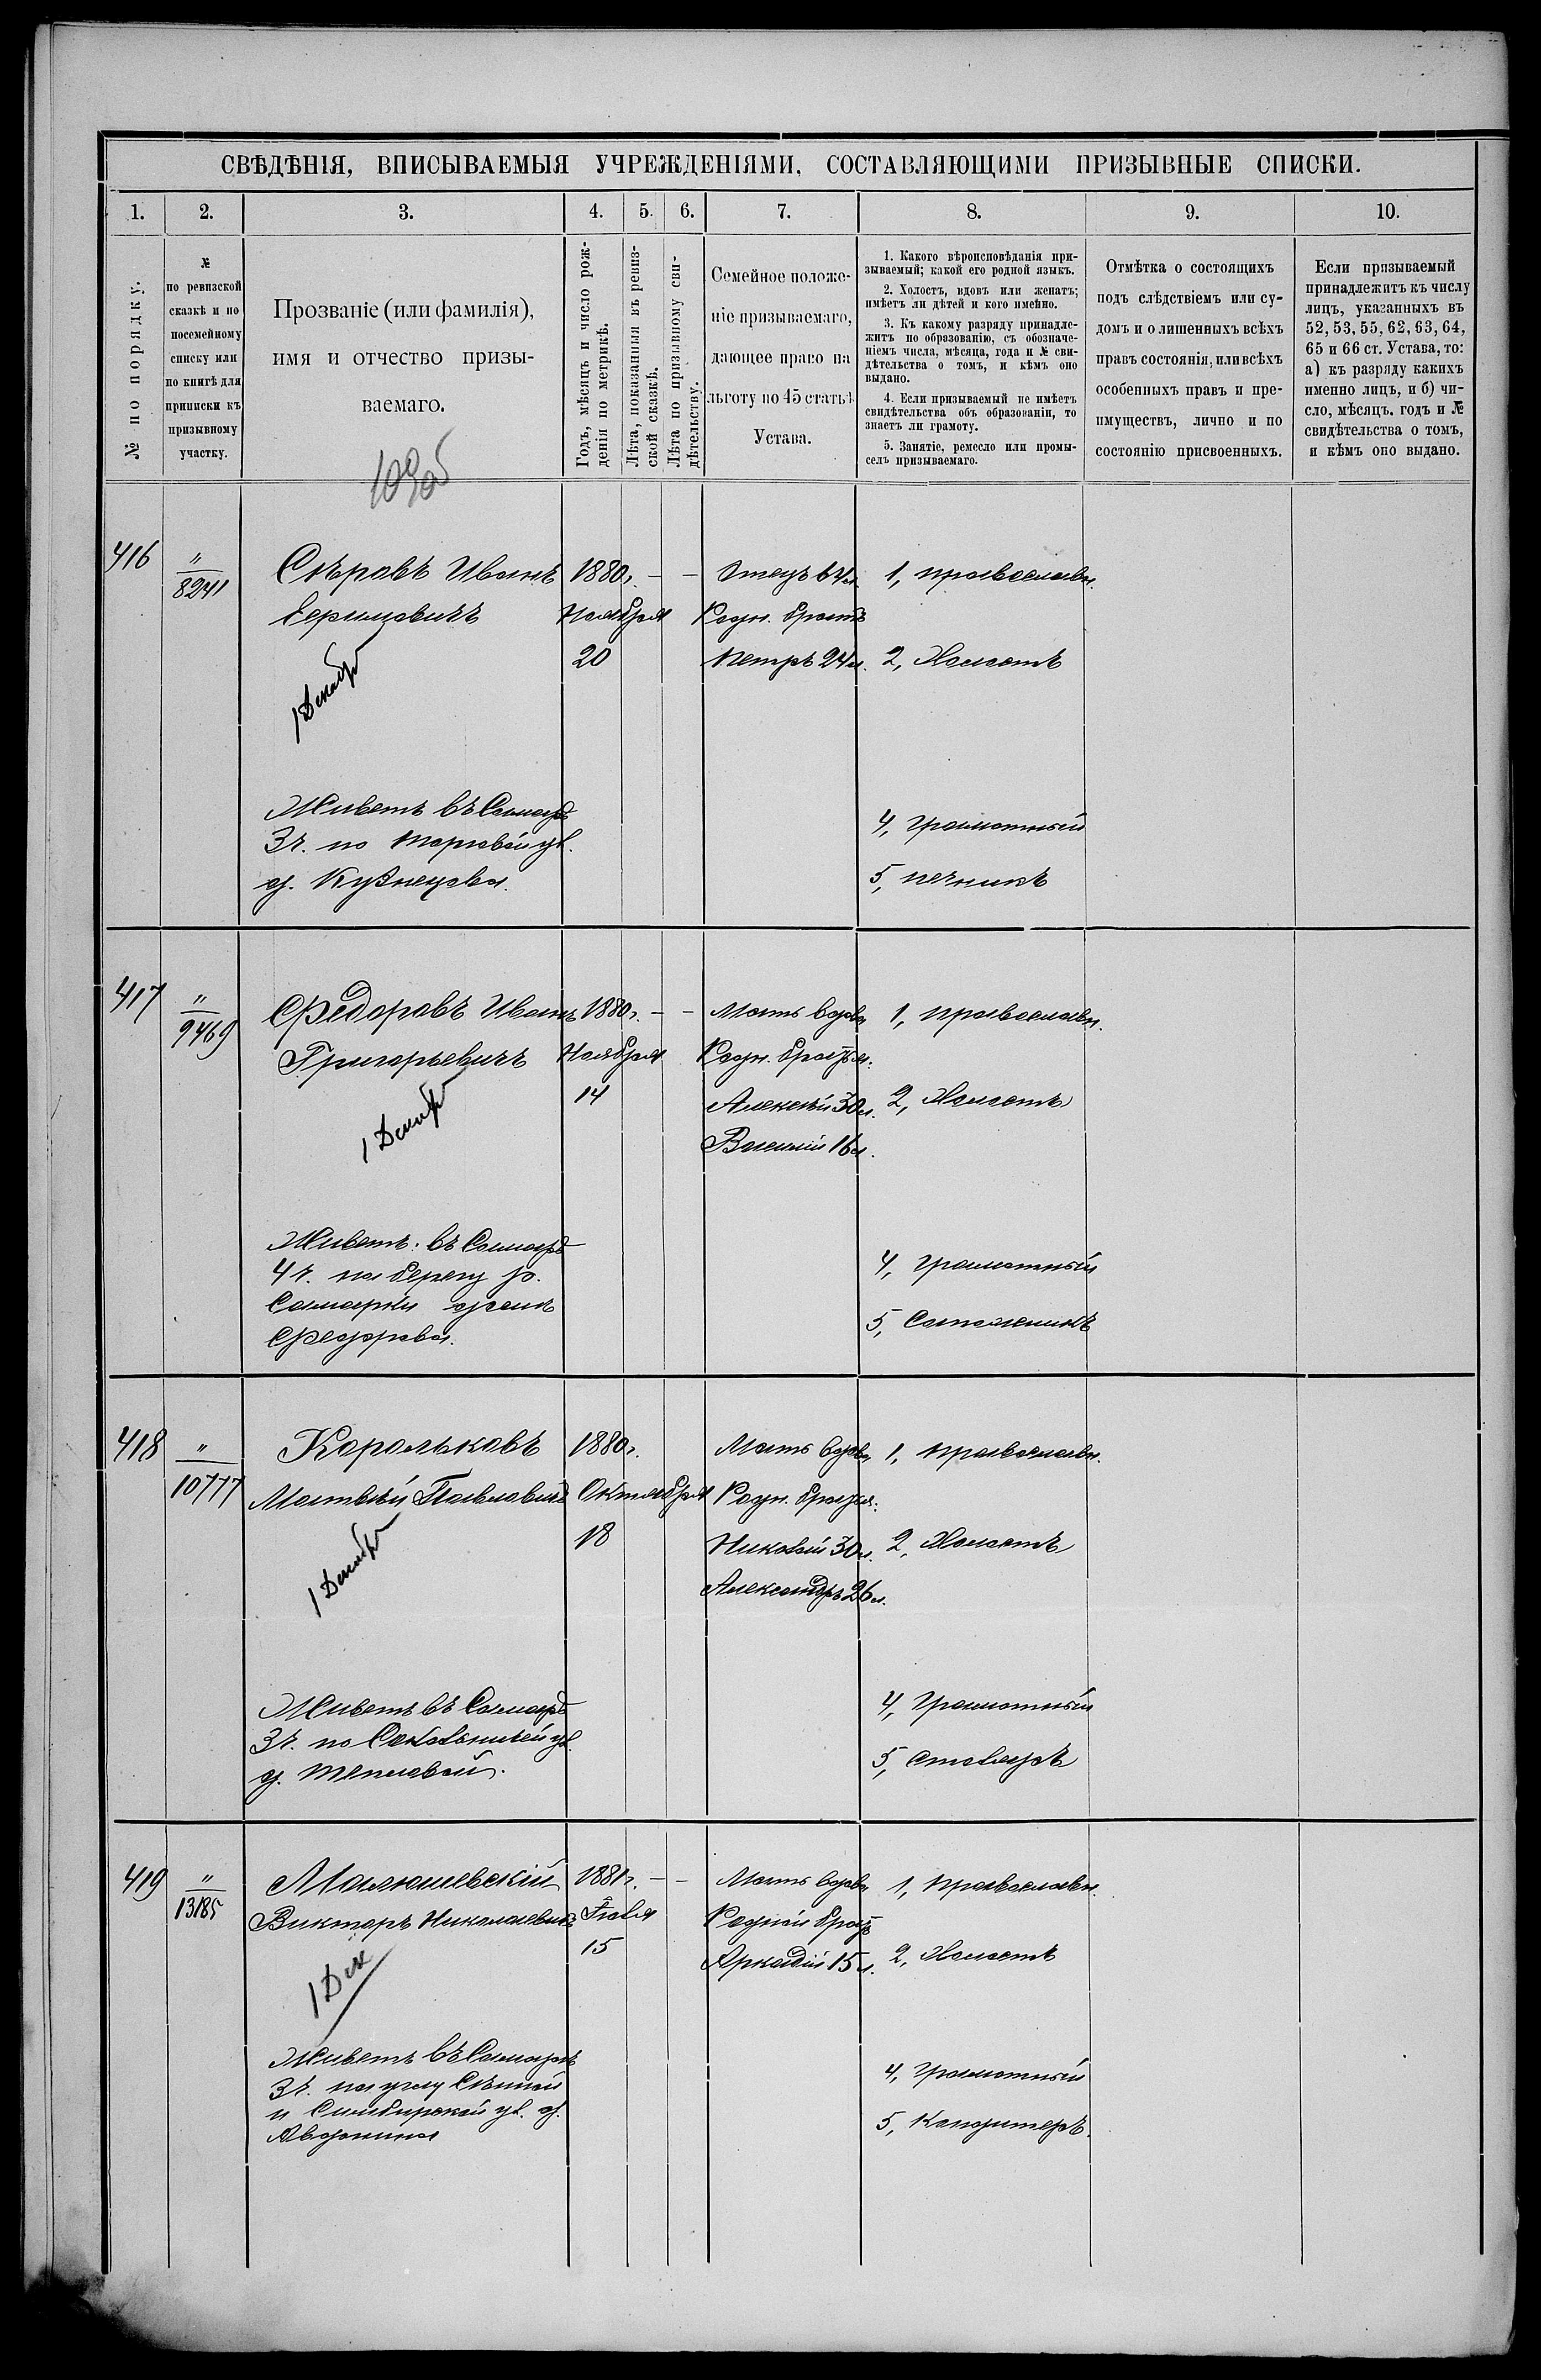 СВѢДѢНІЯ, ВПИСЫВАЕМЫЯ УЧРЕЖДЕНІЯМИ, СОСТАВЛЯЮЩИМИ ПРИЗЫВНЫЕ СПИСКИ.
1. 2. 3. 4. 5. 6. 7. 8. 9. 10.
№ по порядку.
№
по ревизской
сказкѣ и по
посемейному
списку или
по книгѣ для
приписки къ
призывному
участку.
Прозваніе (или фамилія),
имя и отчество призы-
ваемаго.
Годъ, мѣсяцъ и число рож-
денія по метрикѣ.
Лѣта, показанныя въ ревиз-
ской сказкѣ.
Лѣта по призывному сви-
дѣтельству.
Семейное положе-
ніе призываемаго,
дающее право на
льготу по 45 статьѣ
Устава.
1. Какого вѣроисповѣданія при-
зываемый; какой его родной языкъ.
2. Холостъ, вдовъ или женатъ;
имѣетъ ли дѣтей и кого именно.
3. Къ какому разряду принадле-
житъ по образованію, съ обозначе-
ніемъ числа, мѣсяца, года и № сви-
дѣтельства о томъ, и кѣмъ оно
выдано.
4. Если призываемый не имѣетъ
свидѣтельства объ образованіи, то
знаетъ ли грамоту.
5. Занятіе, ремесло или промы-
селъ призываемаго.
Отмѣтка о состоящихъ
подъ слѣдствіемъ или су-
домъ и о лишенныхъ всѣхъ
правъ состоянія, или всѣхъ
особенныхъ правъ и пре-
имуществъ, лично и по
состоянію присвоенныхъ.
Если призываемый
принадлежитъ къ числу
лицъ, указанныхъ въ
52, 53, 55, 62, 63, 64,
65 и 66 ст. Устава, то:
а) къ разряду какихъ
именно лицъ, и б) чи-
сло, мѣсяцъ, годъ и №
свидѣтельства о томъ,
и кѣмъ оно выдано.
416
"
8241
Сѣровъ Иванъ
1 Декабр
Живетъ въ Самарѣ
3 ч. по Торговой ул.
д. Кузнецова.
1880 г. — —
Ноября
20
Отецъ 64 л
Родн. братъ
Петръ 24 л.
1, православн.
2, Холостъ
4, грамотный
5, печникъ
417
"
9469
Федоровъ Иванъ
Григорьевичъ
1 Декабр
Живетъ: въ Самарѣ
4 ч. на берегу р.
Самарки домъ
Федорова.
1880 г. — —
Ноября
14
Мать вдова
Родн. братья:
Алексѣй 30 л.
Василій 16 л.
1, православн.
2, Холостъ
4, грамотный
5, Сапожникъ
418
"
10777
Корольковъ
Матвѣй Павловичъ
1 Декабр
Живетъ въ Самарѣ
3 ч. по Сокольничей ул.
д. Тепловой.
1880 г.
Октября
18
Мать вдова
Родн. братья:
Николай 30 л.
Александръ 26 л.
1, православн.
2, Холостъ
4, Грамотный
5, столяръ
419
"
13185
Малюшевскій
Викторъ Николаевичъ
1 Дек
Живетъ въ Самарѣ
3 ч. на углу Сѣнной
и Симбирской ул. д.
Авдонина
1881 г. — —
15
Мать вдова
Родной братъ
Аркадій 15 л.
1, православн.
2, Холостъ
4, грамотный
5, Кондитеръ.